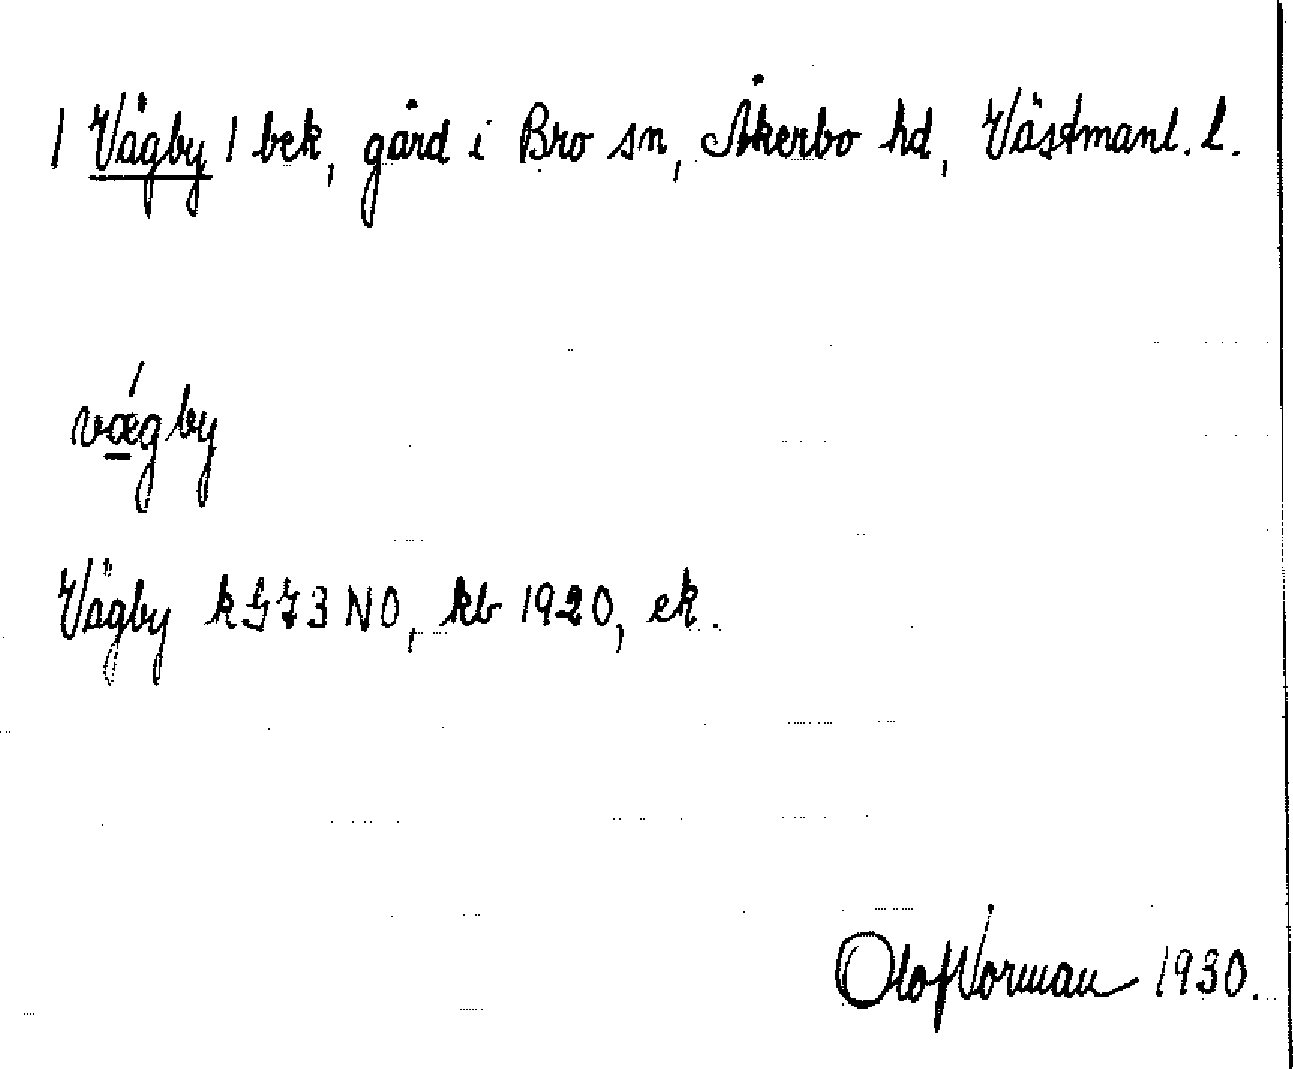 / Vägby / bek, gård i Bro sn, Åkerbo hd, Västmanl. l.
vǽ̲gby
Vägby k G73 NO, kb 1920, ek.
Olof Norman 1930.